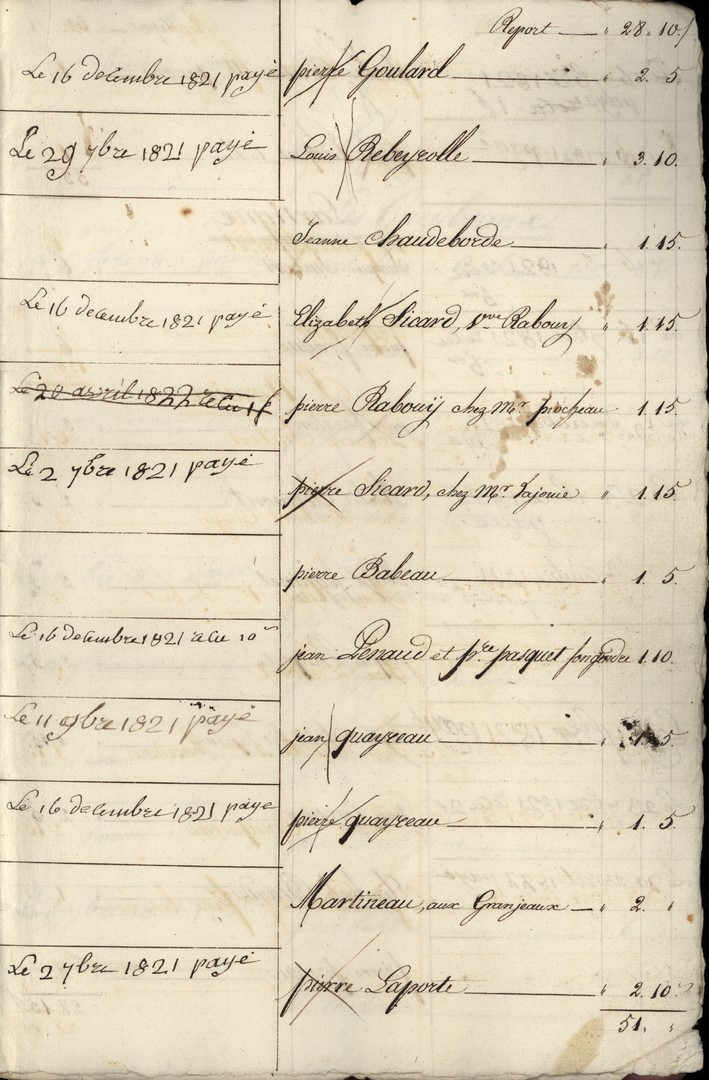 Report — „ 28. 10 /
Le 16 decembre 1821 payé pierre Goulard — „ 2. 5
Le 29 7bre 1821 payé Louis Rebeyrolle — „ 3. 10.
Jeanne Chaudeborde — „ 1. 15.
Le 16 decembre 1821 payé Elizabeth Sicard, vve Rabouy „ 1. 15
Le 20 avril 1822 recu 1f pierre Rabouÿ chez Mr piocheau 1. 15
Le 2 7bre 1821 payé pierre Sicard, chez Mr Lajonie „ 1. 15
pierre Babeau — „ 1. 5.
Le 16 decembre 1821 recu 10 jean Penaud et pre pasquet son gendre 1. 10.
Le 11 9bre 1821 payé jean quayreau — 1. 5.
Le 16 decembre 1821 payé pierre quayreau — „ 1. 5.
Martineau, aux Granjeaux — „ 2. „
Le 2 7bre 1821 payé pierre Laporte — „ 2. 10
51. „